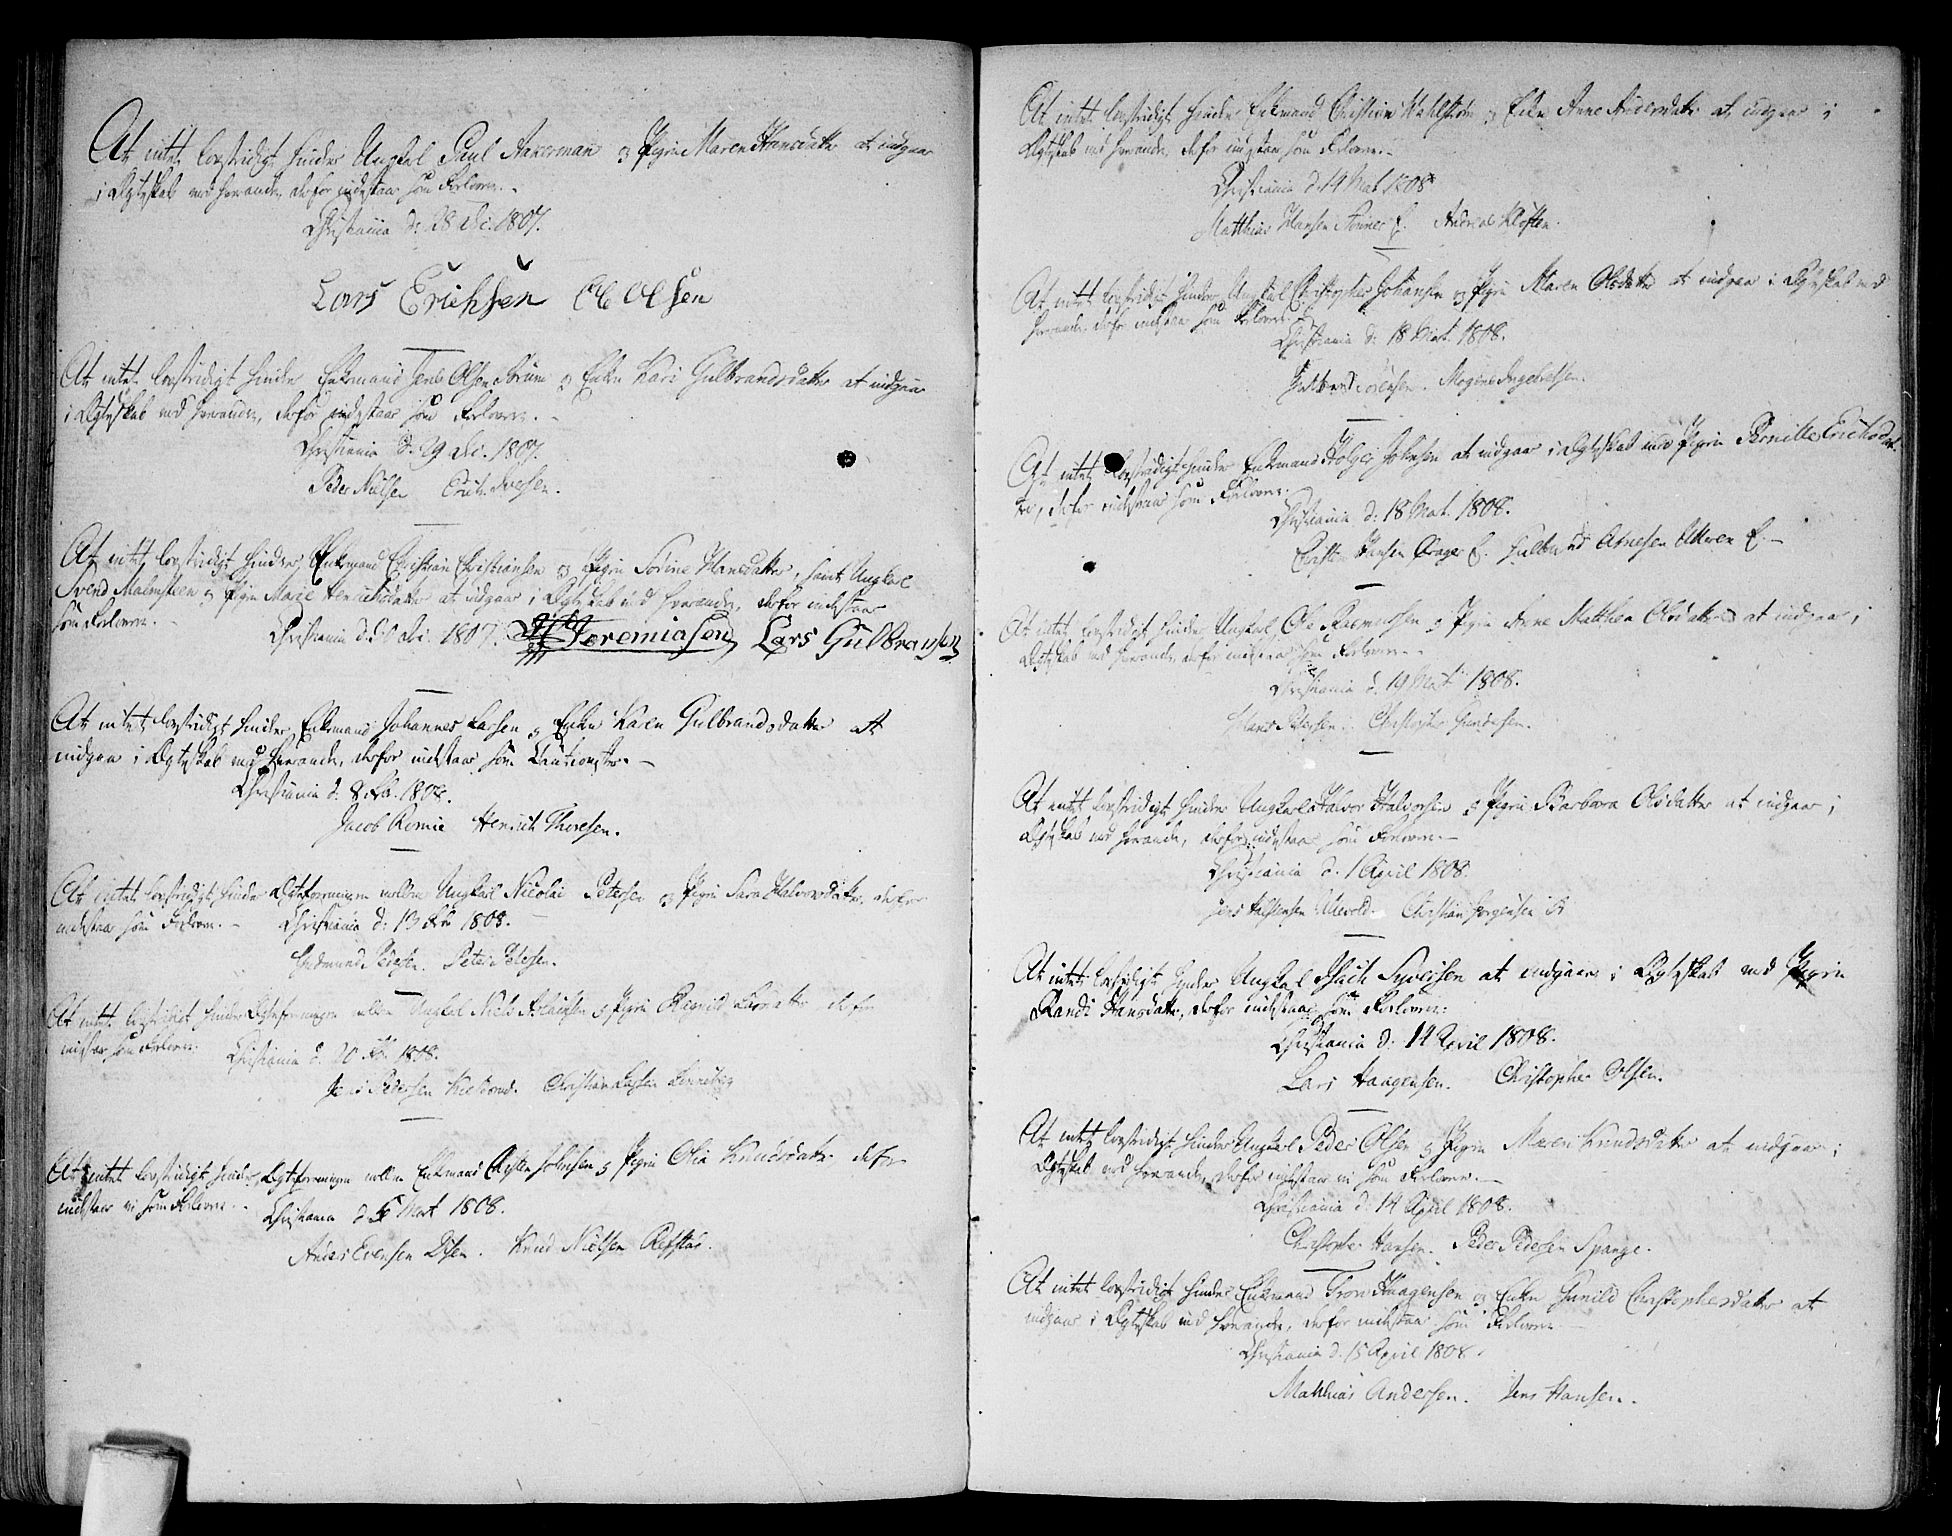 At intet lovstridigt hindrer Ungkal Paul Akerman og Pigen Maren Hansdatter at indgaae
i Ægteskab med hverandre, derfor indestaar som Forlovere.-
Christiania d: 28 Dec. 1807.
Lars Erichsen Ole Olsen
At intet lovstridigt hindrer Enkemand Jens Olsen og Enken Kari Gulbrandsdatter at indgaae
i Ægteskab med hverandre, derfor indestaar som Forlovere. -
Christiania d: 29 Dec. 1807.
Peder Nielsen Erich Iversen.
At intet lovstridigt hindrer, Enkemand Christian Christiansen og Pigen Sorine Hansdatter, samt Ungkarl
Svend Malmsteen og Pigen Marie Henrichsdatter at indgaae i Ægteskab med hverandre, derfor indestaar
som Forlovere. -
Christiania d: 30 Dec. 1807. Jeremiasen Lars Gulbransen
At intet lovstridigt hindrer, Enkemand Johannes Larsen og Enken Karen Gulbrandsdatter at
indgaa i Ægteskab med hverandre, derfor indestaar som Cautionister. -
Christiania d: 8 Feb. 1808.
Jacob Romie Henrich Thoresen.
At intet lovstridigt hindrer Ægteforeningen mellem Ungkarl Nicolai Petersen og Pigen Sara Halvorsdatter, derfor
indestaar som Forlovere. - Christiania d: 13 Feb 1808.
Gudmund Pedersen. Peter Petersen.
At intet lovstridigt hindrer Ægteforeningen mellem Ungkal Niels Aslachsen og Pigen Ragnild derfor
indestaar som Forlovere. Christiania d: 20 Feb. 1808.
Jens Pedersen Christian Larsen
At intet lovstridigt hindrer, Ægteforeningen mellem Enkemand Christen Johnsen og Pigen Olia Knudsdatter derfor
indestaar vi som Forlovere. - Christiania d: 5 Mart 1808.
Anders Evensen Disen. Knud Nielsen Refstad.
At intet lovstridigt hindrer Enkemand Christian Wahlstrøm og Enken Anne Andersdatter at indgaae i
Ægteskab med hverandre, derfor indestaar som Forlovere. -
Christiania d. 14 Mart 1808
Matthias Hansen Andreas Kløften.
At intet lovstridigt hindrer Ungkarl Christopher Johansen og Pigen Maren Olsdatter at indgaae i Ægteskab med
hverandre, derfor indestaar som Forlovere.
Christiania d: 18 Mart. 1808.
Gulbrand Sørensen. Mogens Ingebretsen.
At intet lovstridigt hindrer Enkemand Holger Johnsen at indgaae i Ægteskab med Pigen Pernille Erichsdat-
ter, derfor indestaar som Forlovere.
Christiania d: 18 Mart. 1808.
Christen Hansen Gulbrand Arnesen
At intet lovstridigt hindrer Ungkarl, Ole Rasmussen og Pigen Anne Matthea Olsdatter at indgaae, i
Ægteskab med hverandre, derfor indestaar som Forlovere. -
Christiania d. 19 Mart 1808.
Hans Petersen. Christopher Gundersen.
At intet lovstridigt hindrer Ungkarl Halvor Halvorsen og Pigen Barbara Olsdatter at indgaae i
Ægteskab med hverandre, derfor indestaar som Forlovere. -
Christiania d. 1 April 1808.
Jens Halstensen Ullevold. Christian Jørgensen
At intet lovstridigt hindrer Ungkarl Isach Syversen at indgaae i Ægteskab med Pigen
Randi Hansdatter, derfor indestaar som Forlovere:
Christiania d: 14 April 1808.
Lars Haagensen. Christopher Olsen.
At intet lovstridigt hindrer Ungkarl Peder Olsen og Pigen Maren Knudsdatter at indgaae i
Ægteskab med hverandre, derfor indestaar vi som Forlovere. -
Christiania d: 14 April 1808.
Christopher Hansen. Peder Pedersen Spange.
At intet lovstridigt hindrer Enkemand Tron Haagensen og Enken Gunild Christophersdatter at
indgaae i Ægteskab med hverandre, derfor indestaar som Forlovere -
Christiania d. 15 April 1808.
Mathias Andersen. Jens Hansen.